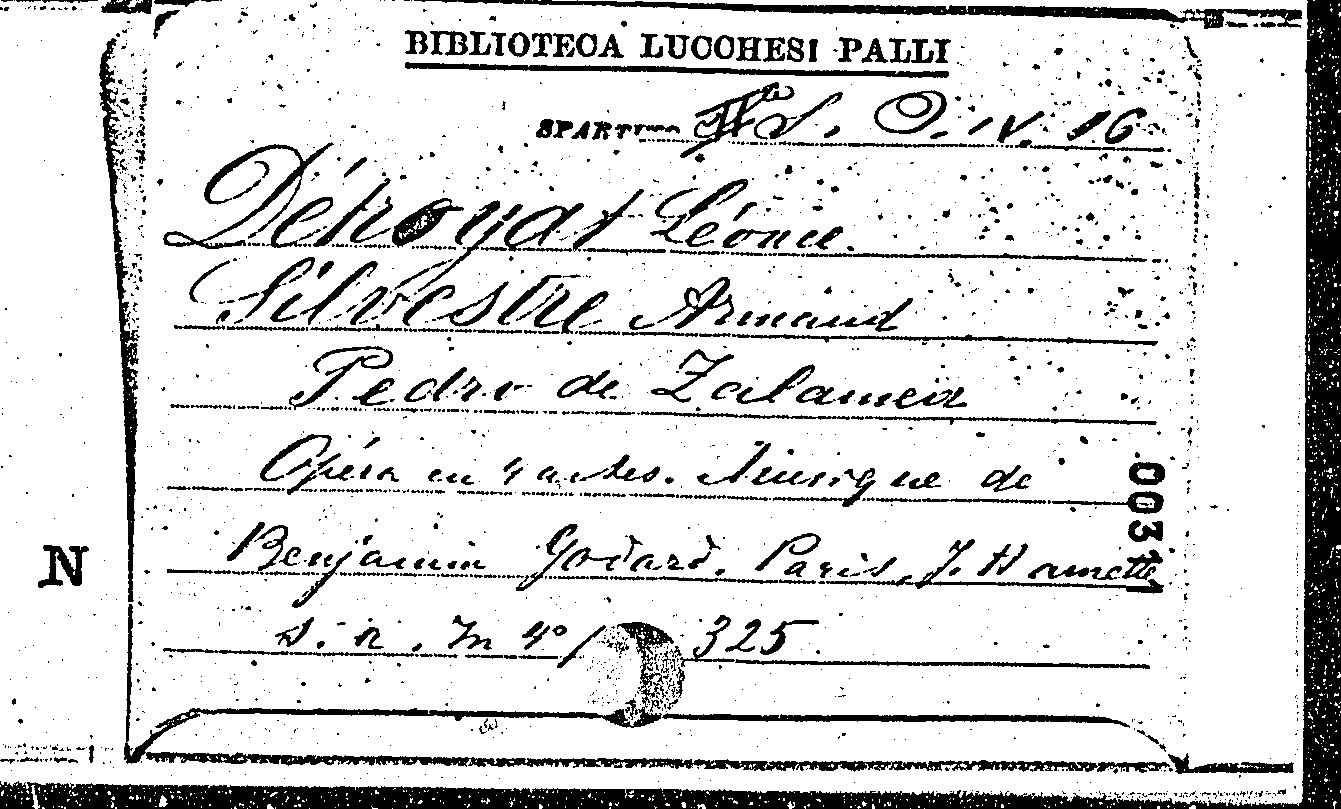 BIBLIOTECA LUCCHESI PALLI
SPARTITO S. O. IV. 16
Détroyat Léonce.
Silvestre Armand
Pedro de Zalamea
Opéra en 4 actes. Musique de
Benjamin Godard. Paris, J. Hamelle
s. n. In 4° 325.
N
0031